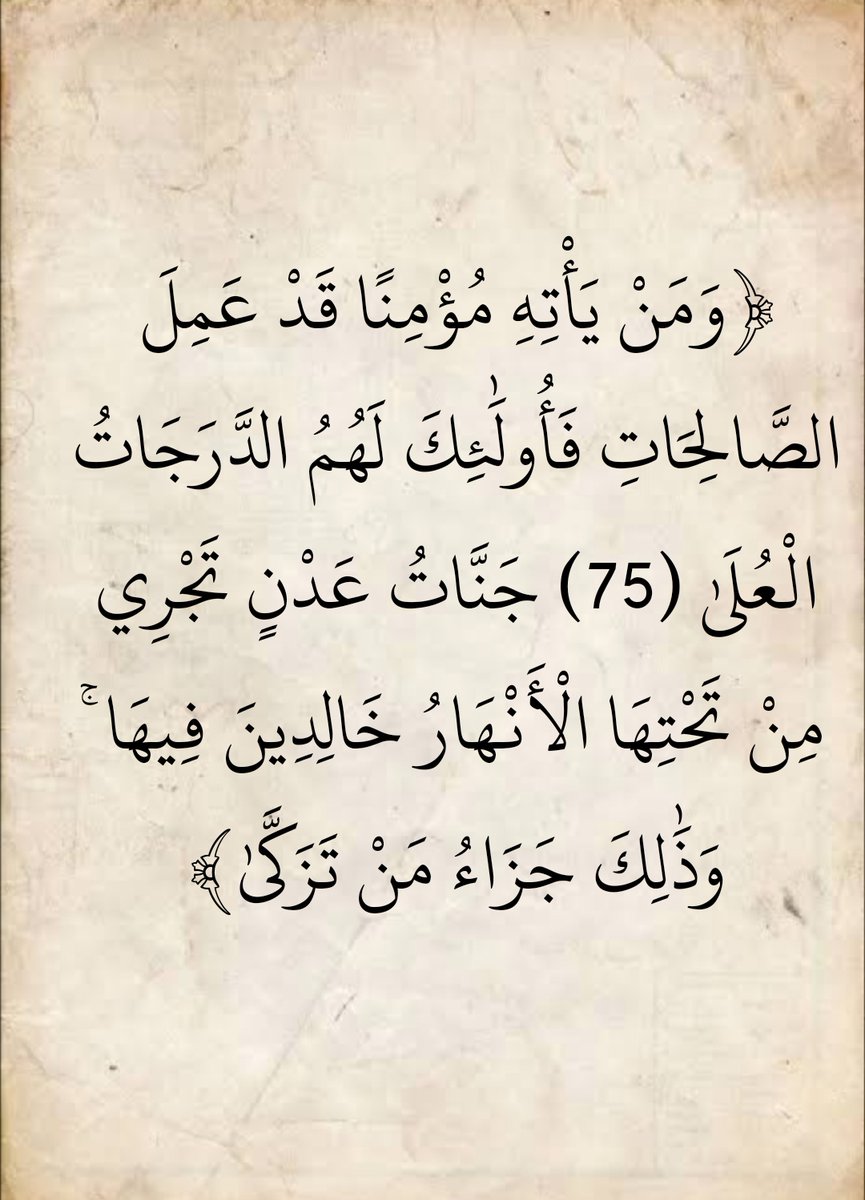 ﴿وَمَنْ يَأْتِهِ مُؤْمِنًا قَدْ عَمِلَ
الصَّالِحَاتِ فَأُولَٰئِكَ لَهُمُ الدَّرَجَاتُ
الْعُلَىٰ (75) جَنَّاتُ عَدْنٍ تَجْرِي
مِنْ تَحْتِهَا الْأَنْهَارُ خَالِدِينَ فِيهَا ۚ
وَذَٰلِكَ جَزَاءُ مَنْ تَزَكَّىٰ﴾